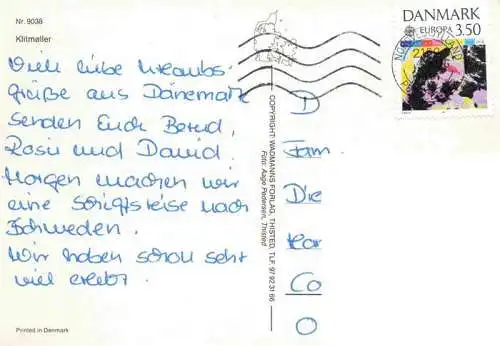 Nr. 9038
Klitmøller
Viele liebe Urlaubs-
grüße aus Dänemark
senden Euch Bernd,
Rosi und David.
Morgen machen wir
eine Schiffsreise nach
Schweden.
Wir haben schon sehr
viel erlebt.
Printed in Denmark
COPYRIGHT: WADMANNS FORLAG, THISTED, TLF. 97 92 31 66
Foto: Aage Pedersen, Thisted
DANMARK
EUROPA 3.50
D
Fam.
Die
Kar
Co
O